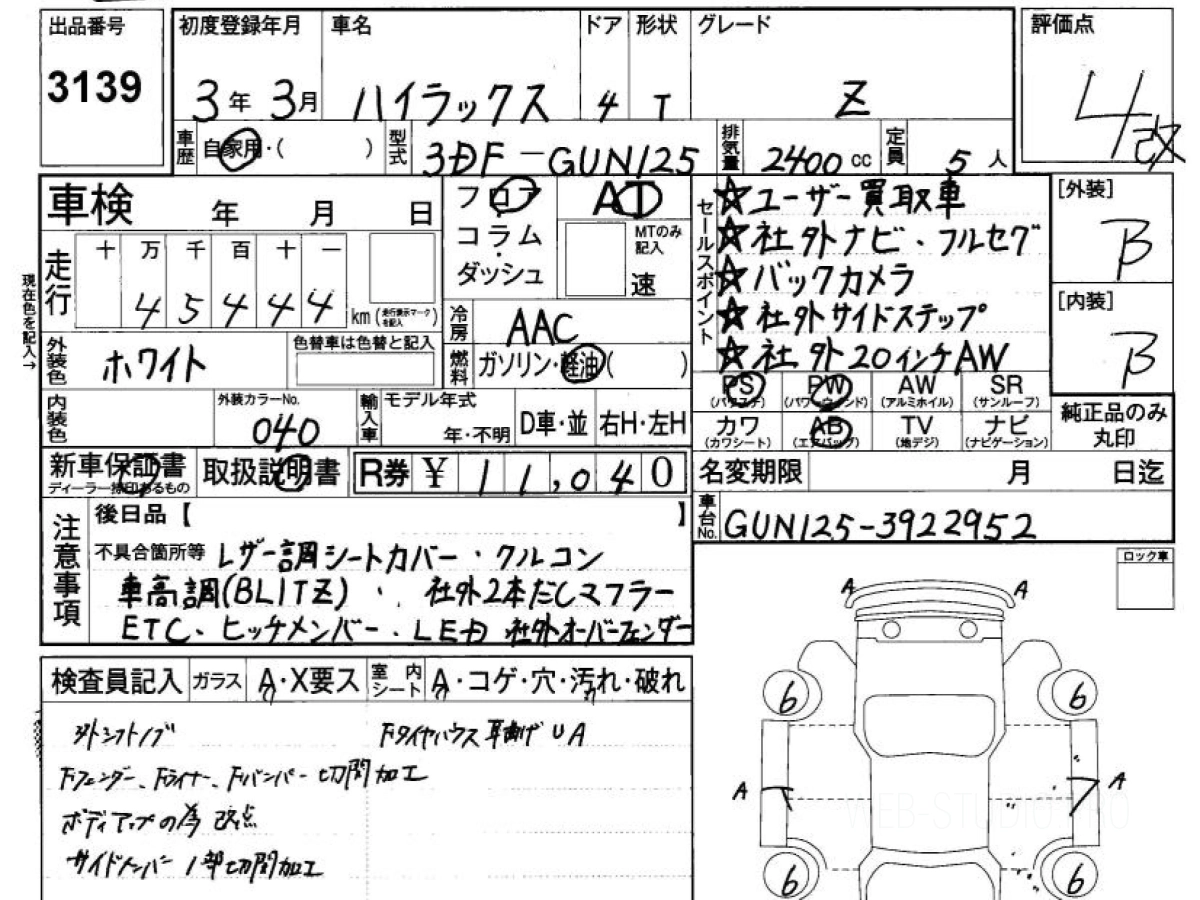 出品番号 初度登録年月 車名 ドア 形状 グレード 評価点
3139 3年 3月 ハイラックス 4 T Z 4改
車歴 自家用・( ) 型式 3DF-GUN125 排気量 2400cc 定員 5人
車検 年 月 日
フロア・コラム・ダッシュ AT MTのみ記入 速
走行 十 万 千 百 十 一
4 5 4 4 4 km (走行表示マークを記入)
現在色を記入→
冷房 AAC
外装色 ホワイト 色替車は色替と記入
燃料 ガソリン・軽油( )
セールスポイント
☆ユーザー買取車
☆社外ナビ・フルセグ
☆バックカメラ
☆社外サイドステップ
☆社外20インチAW
[外装] B
[内装] B
内装色 外装カラーNo. 040 輸入車 モデル年式 年・不明 D車・並 右H・左H
PS (パワステ) PW (パワーウィンド) AW (アルミホイル) SR (サンルーフ)
カワ (カワシート) AB (エアバッグ) TV (地デジ) ナビ (ナビゲーション)
純正品のみ丸印
新車保証書 ディーラー捺印あるもの 取扱説明書 R券 ¥ 11,040
名変期限 月 日迄
車台No. GUN125-3922952
注意事項
後日品【 】
不具合箇所等 レザー調シートカバー・クルコン
車高調(BLITZ)・社外2本だしマフラー
ETC・ヒッチメンバー・LED 社外オーバーフェンダー
ロック車
検査員記入 ガラス A・X要ス 室内シート A・コゲ・穴・汚れ・破れ
外シフトノブ Fタイヤハウス 耳曲げ UA
Fフェンダー、Fライナー、Fバンパー切開加工
ボディアップの為 改点
サイドメンバー 1部切開加工
A A
6 6
A A
6 6
WEB-STUDIO.PRO